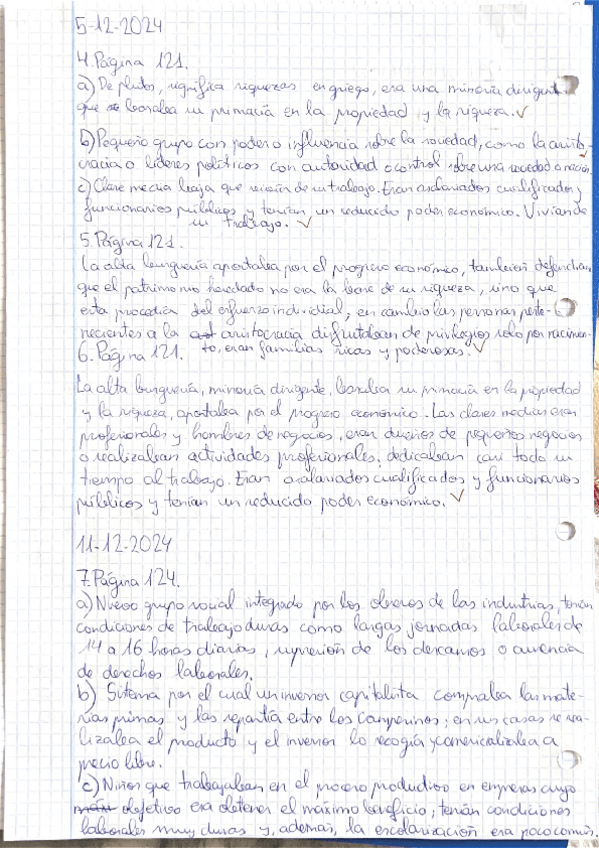 5-12-2024
4. Página 121.
a) De plutos, significa riquezas en griego, era una minoría dirigente
que se basaba su primacía en la propiedad y la riqueza. ✓
b) Pequeño grupo con poder o influencia sobre la sociedad, como la aristo-
cracia o líderes políticos con autoridad o control sobre una sociedad o nación.
c) Clase media baja que vivían de su trabajo. Eran asalariados cualificados y
funcionarios públicos y tenían un reducido poder económico. Vivían de
su trabajo. ✓
5. Página 121.
La alta burguesía apostaba por el progreso económico, también defendían
que el patrimonio heredado no era la base de su riqueza, sino que
esta procedía del esfuerzo individial, en cambio las personas perte-
necientes a la aristocracia disfrutaban de privilegios solo por nacimien-
to, eran familias ricas y poderosas. ✓
6. Página 121.
La alta burguesía, minoría dirigente, basaba su primacía en la propiedad
y la riqueza, apostaba por el progreso económico. Las clases medias eran
profesionales y hombres de negocios, eran dueños de pequeños negocios
o realizaban actividades profesionales, dedicaban casi todo su
tiempo al trabajo. Eran asalariados cualificados y funcionarios
públicos y tenían un reducido poder económico. ✓
11-12-2024
7. Página 124.
a) Nuevo grupo social integrado por los obreros de las industrias, tenían
condiciones de trabajo duras como largas jornadas laborales de
14 a 16 horas diarias, supresión de los descansos o ausencia
de derechos laborales.
b) Sistema por el cual un inversor capitalista compraba las mate-
rias primas y las repartía entre los campesinos; en sus casas se rea-
lizaba el producto y el inversor lo recogía y comercializaba a
precio libre.
c) Niños que trabajaban en el proceso productivo en empresas cuyo
objetivo era obtener el máximo beneficio; tenían condiciones
laborales muy duras y, además, la escolarización era poco común.